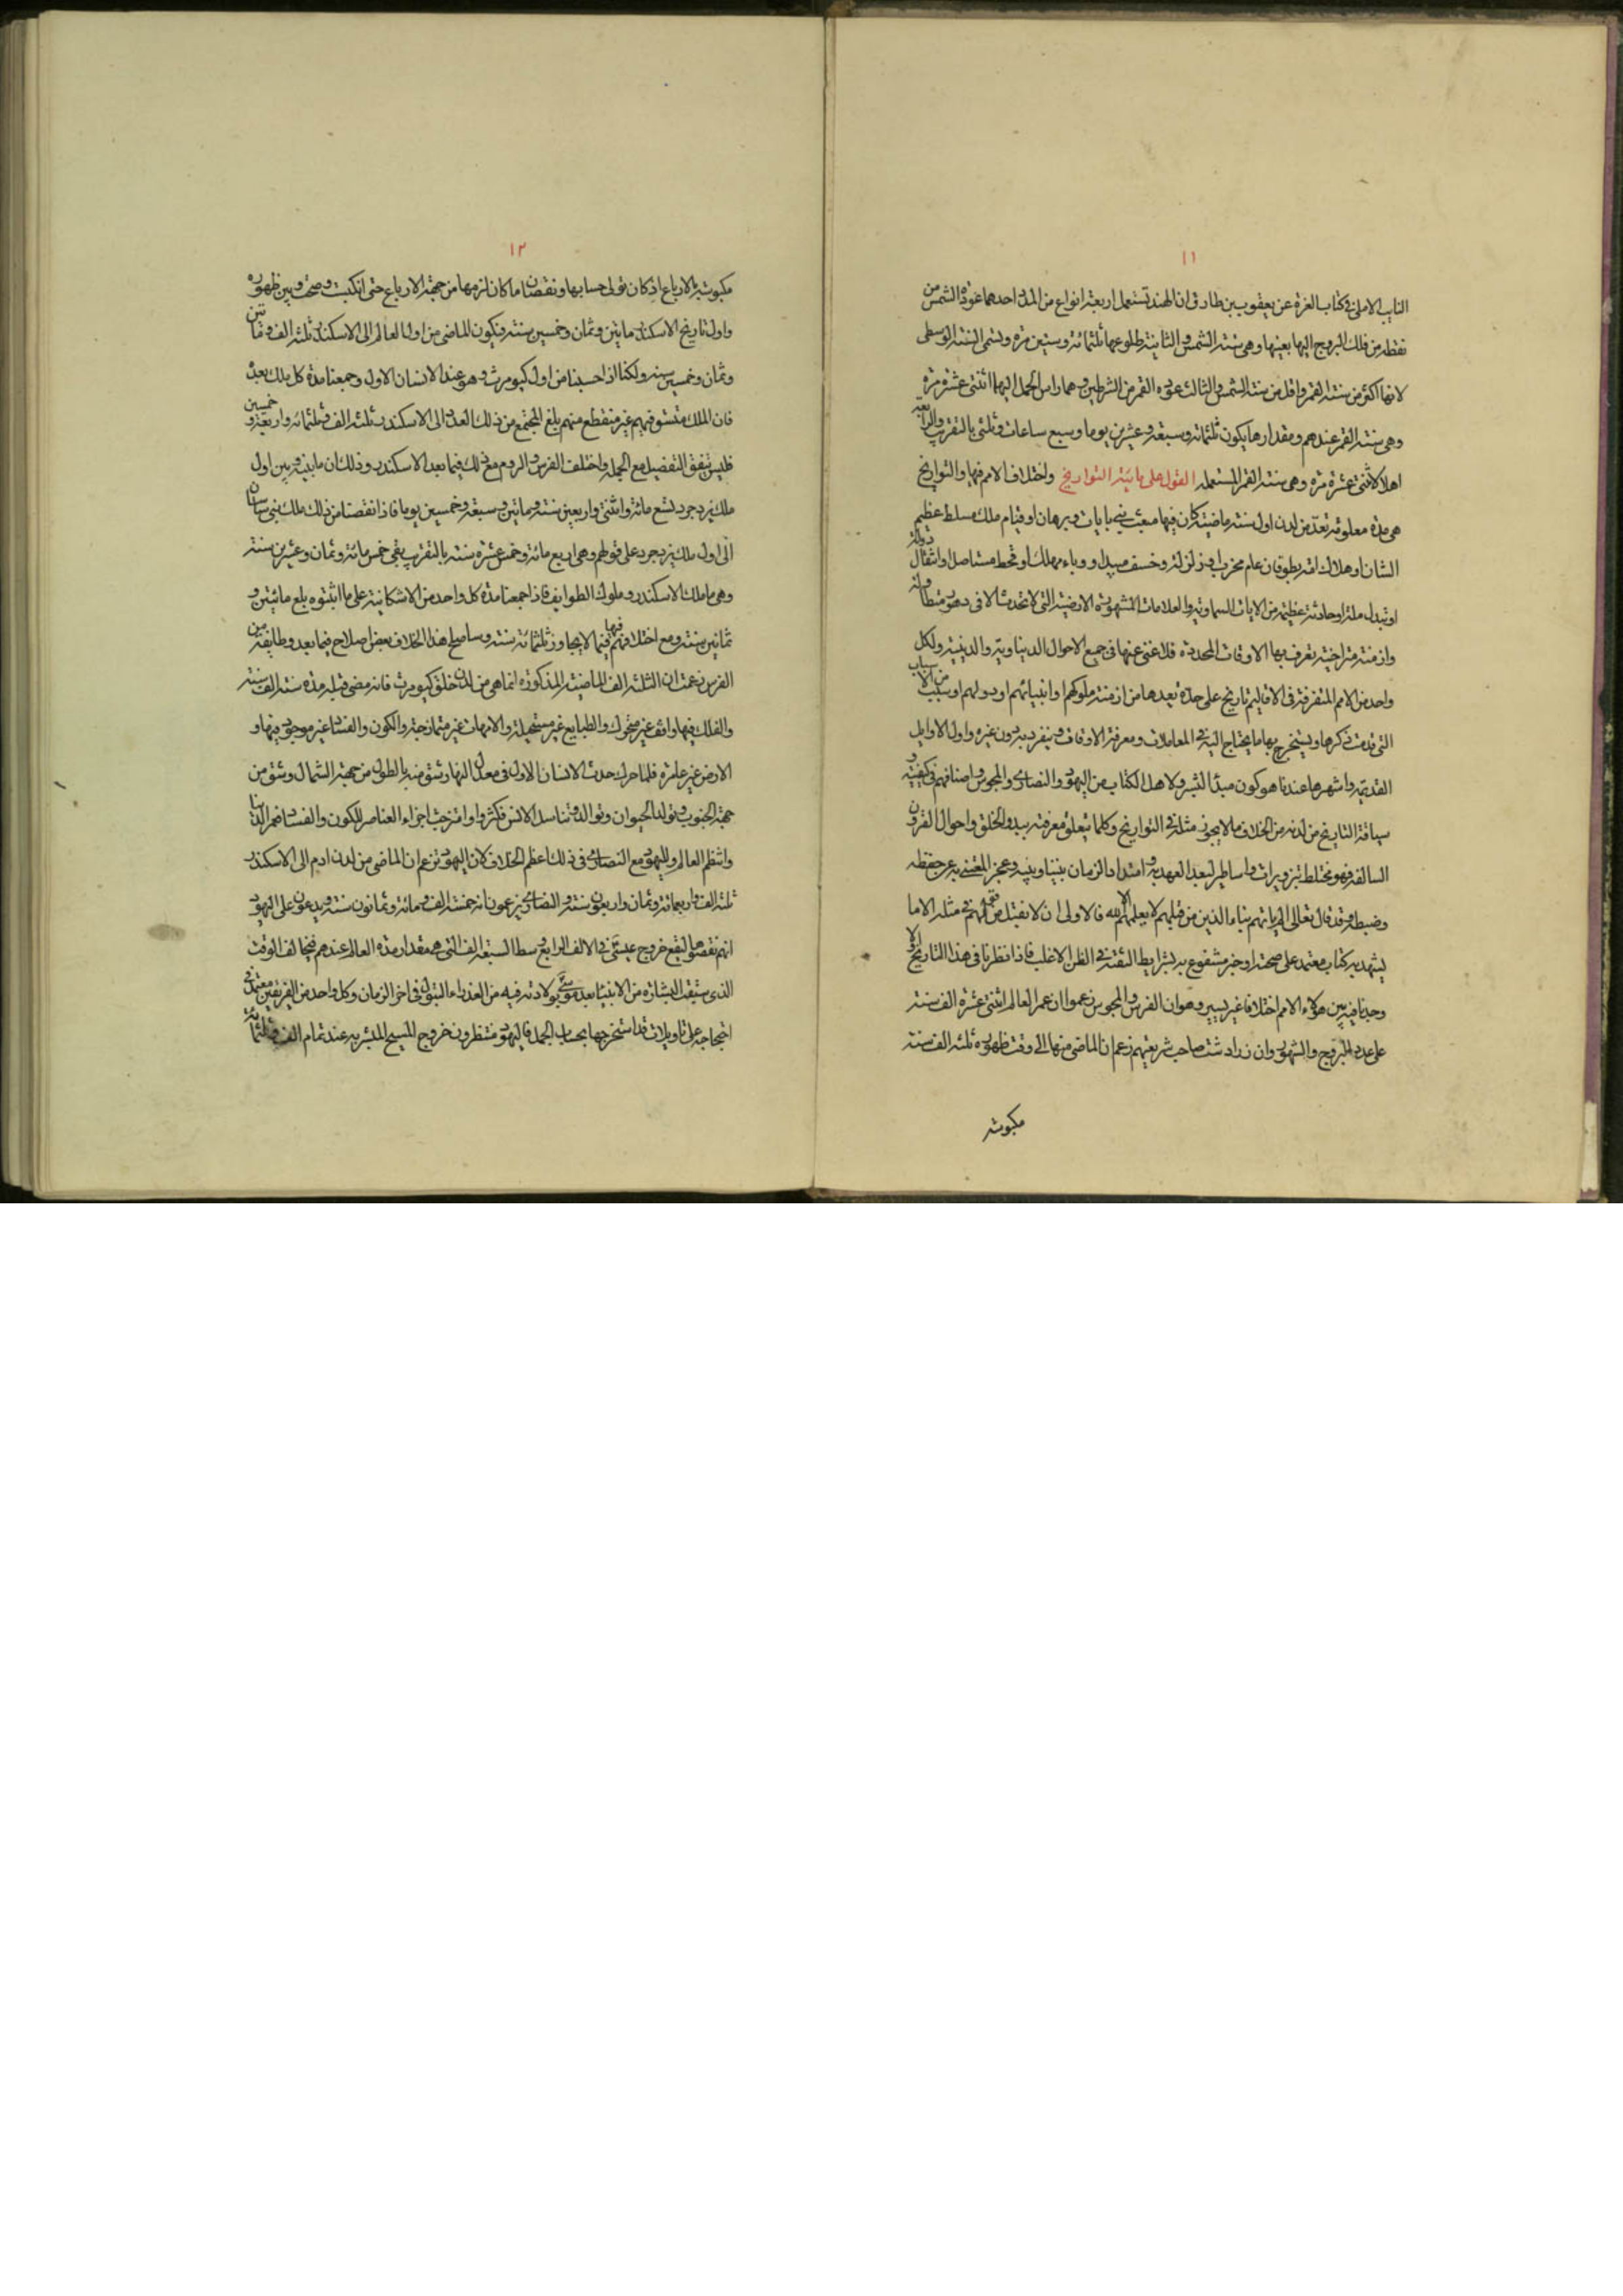 ١١
النايب الاملى فى كتاب الغرة عن يعقوب بن طارق ان الهند تستعمل اربعة انواع من المدد احدها عودة الشمس من
نقطة من فلك البروج اليها بعينها وهى سنة الشمس والثانية طلوعها ثلثمائة وستين مرة وتسمى السنة الوسطى
لانها اكثر من سنة القمر واقل من سنة الشمس والثالث عودة القمر من الشرطين وهما راس الحمل اليهما اثنتى عشرة مرة
وهى سنة القمر عندهم ومقدارها يكون ثلثمائة وسبعة وعشرين يوما وسبع ساعات وثلثى بالتقريب والرابعة
اهلاكا اثنتى عشرة مرة وهى سنة القمر المستعملة القول على مائية التواريخ واختلاف الامم فيها والتواريخ
هى مدة معلومة تعد من لدن اول سنة ماضية كان فيها مبعث نبى بايات وبرهان او قيام ملك مسلط عظيم
الشان او هلاك امة بطوفان عام مخرب او زلزلة وخسف مبيد او وباء مهلك او قحط مستاصل او انتقال دولة
او تبدل ملة او حادثة عظيمة من الايات السماوية والعلامات المشهورة الارضية التى لا تحدث الا فى دهور متطاولة
وازمنة متراخية تعرف بها الاوقات المحددة فلا غنى عنها فى جميع الاحوال الدنياوية والدينية ولكل
واحد من الامم المتفرقة فى الاقاليم تاريخ على حدة تعدها من ازمنة ملوكهم او انبيائهم او دولهم او سبب من الاسباب
التى قدمت ذكرها ويستخرج بها ما يحتاج اليه فى المعاملات ومعرفة الاوقات وينفرد به دون غيره واول الاوايل
القديمة واشهرها عندنا هو كون مبدأ البشر ولاهل الكتاب من اليهود والنصارى والمجوس واصنافهم فى كيفيته و
سياقة التاريخ من لدنه من الخلاف ما لا يجوز مثله فى التواريخ وكلما يتعلق معرفته ببدو الخلق واحوال القرون
السالفة فهو مختلط بتزويرات واساطير لبعد العهد به وامتداد الزمان بيننا وبينه وعجز المعتنى به عن حفظه
وضبطه وقد قال تعالى الم ياتهم نبأ الذين من قبلهم لا يعلمهم الا الله فالاولى ان لا نقبل من قولهم فى مثله الا ما
يشهد به كتاب معتمد على صحته او خبر مشفوع به بشرايط الثقة فى الظن الاغلب فاذا نظرنا فى هذا التاريخ اولا
وجدنا فيه بين هؤلاء الامم اختلافا غير يسير وهو ان الفرس والمجوس زعموا ان عمر العالم اثنتى عشرة الف سنة
على عدد البروج والشهور وان زرادشت صاحب شريعتهم زعم ان الماضى منها الى وقت ظهوره ثلثة الف سنة
مكبوسة
١٢
مكبوسة بالارباع اذ كان تولى حسابها ونقصنا ما كان لزمها من جهة الارباع حتى انكبست وصحت وبين ظهوره
واول تاريخ الاسكندر مايتين وثمان وخمسين سنة فيكون الماضى من اول العالم الى الاسكندر ثلثة الف ومائتين
وثمان وخمسين سنة ولكنا اذا حسبنا من اول كيومرث وهو عند الانسان الاول وجمعنا مدة كل ملك بعده
فان الملك متسق فيهم غير منقطع منهم بلغ المجتمع من ذلك العدد الى الاسكندر ثلثة الف وثلثمائة واربعة وخمسين
فليس يتفق التفصيل مع الجملة واختلف الفرس والروم مع ذلك فيما بعد الاسكندر وذلك ان ما بينه وبين اول
ملك يزدجرد تسع مائة واثنتى واربعين سنة ومائتين وسبعة وخمسين يوما فاذا نقصنا من ذلك ملك بنى ساسان
الى اول ملك يزدجرد على قولهم وهى اربع مائة وخمس عشرة سنة بالتقريب بقى خمس مائة وثمان وعشرين سنة
وهى ما ملك الاسكندر وملوك الطوايف فاذا جمعنا مدة كل واحد من الاشكانية على ما اثبتوه بلغ مائتين و
ثمانين سنة ومع اختلافهم فيها فيما لا يجاوز ثلثمائة سنة وساصلح هذا الخلاف بعض اصلاح فيما بعد وطايفة من
الفرس زعمت ان الثلثة الف الماضية المذكورة انما هى من لدن خلق كيومرث فانه مضى قبله مدة ستة الف سنة
والفلك فيها واقف غير متحرك والطبايع غير مستحيلة والامهات غير متمازجة والكون والفساد غير موجود فيها و
الارض غير عامرة فلما حرك حدث الانسان الاول فى معدل النهار وشق منه بالطول من جهة الشمال وشق من
جهة الجنوب وتولد الحيوان وتوالد وتناسل الانس فكثروا وامتزجت اجزاء العناصر للكون والفساد فعمر الدنيا
وانتظم العالم ولليهود مع النصارى فى ذلك اعظم الخلاف لان اليهود تزعم ان الماضى من لدن ادم الى الاسكندر
ثلثة الف واربعمائة وثمان واربعون سنة والنصارى يزعمون انه خمسة الف ومائة وثمانون سنة ويدعون على اليهود
انهم نقصوها ليقع خروج عيسى فى الالف الرابع وسط السبعة الف التى هى مقدار مدة العالم عندهم فيخالف الوقت
الذى سبقت البشارة من الانبياء بعد موسى بولادته فيه من العذراء البتول فى اخر الزمان وكل واحد من الفريقين معتمد فى
احتجاجه على تاويلات قد استخرجها بحساب الجمل فاليهود منتظرون خروج المسيح المبشر به عند تمام الف وثلثمائة